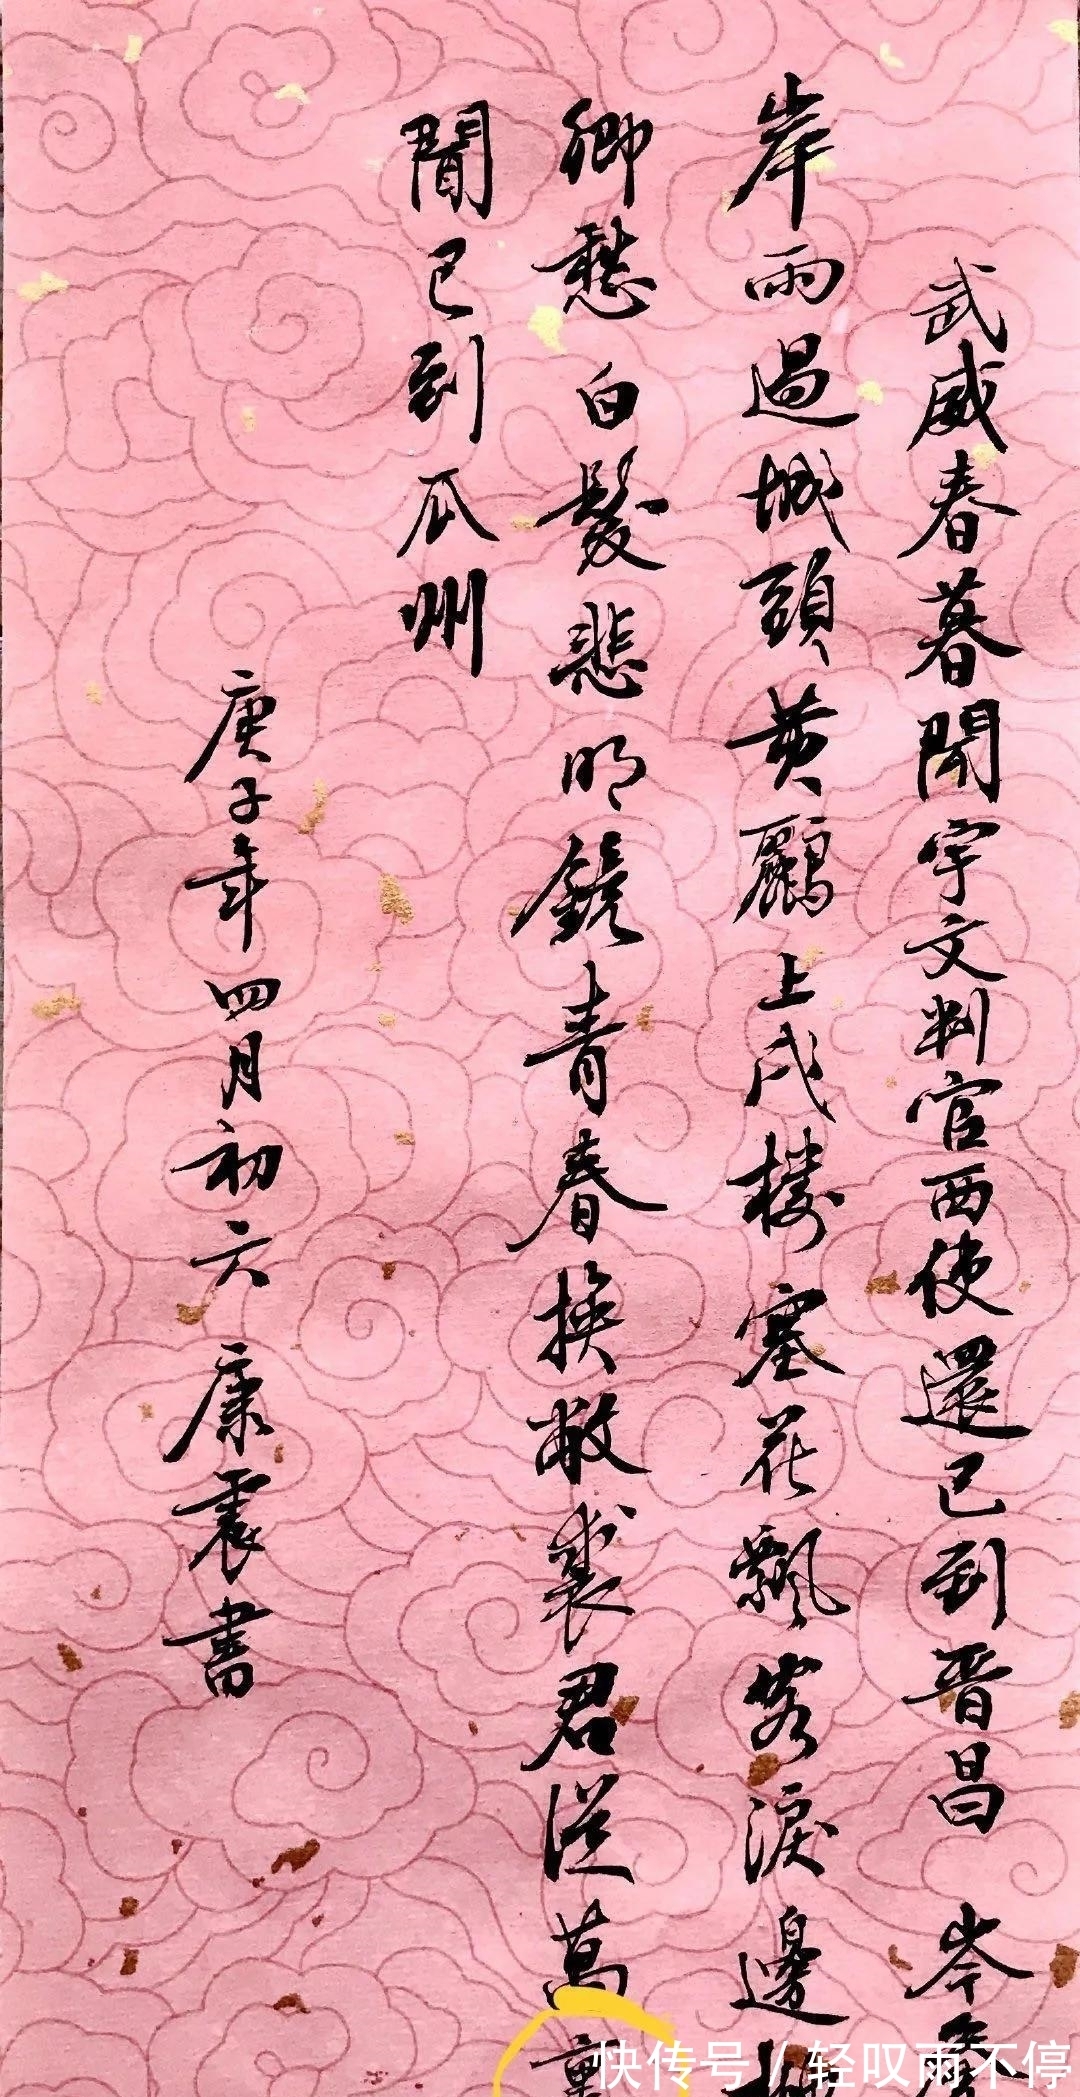 武威春暮聞宇文判官西使還已到晋昌 岑参
岸雨過城頭黄鸝上戍樓塞花飄客淚邊柳
鄉愁白髮悲明鏡青春換敝裘君從萬重
聞已到瓜州
庚子年四月初六 康震書
快传号 / 轻叹雨不停